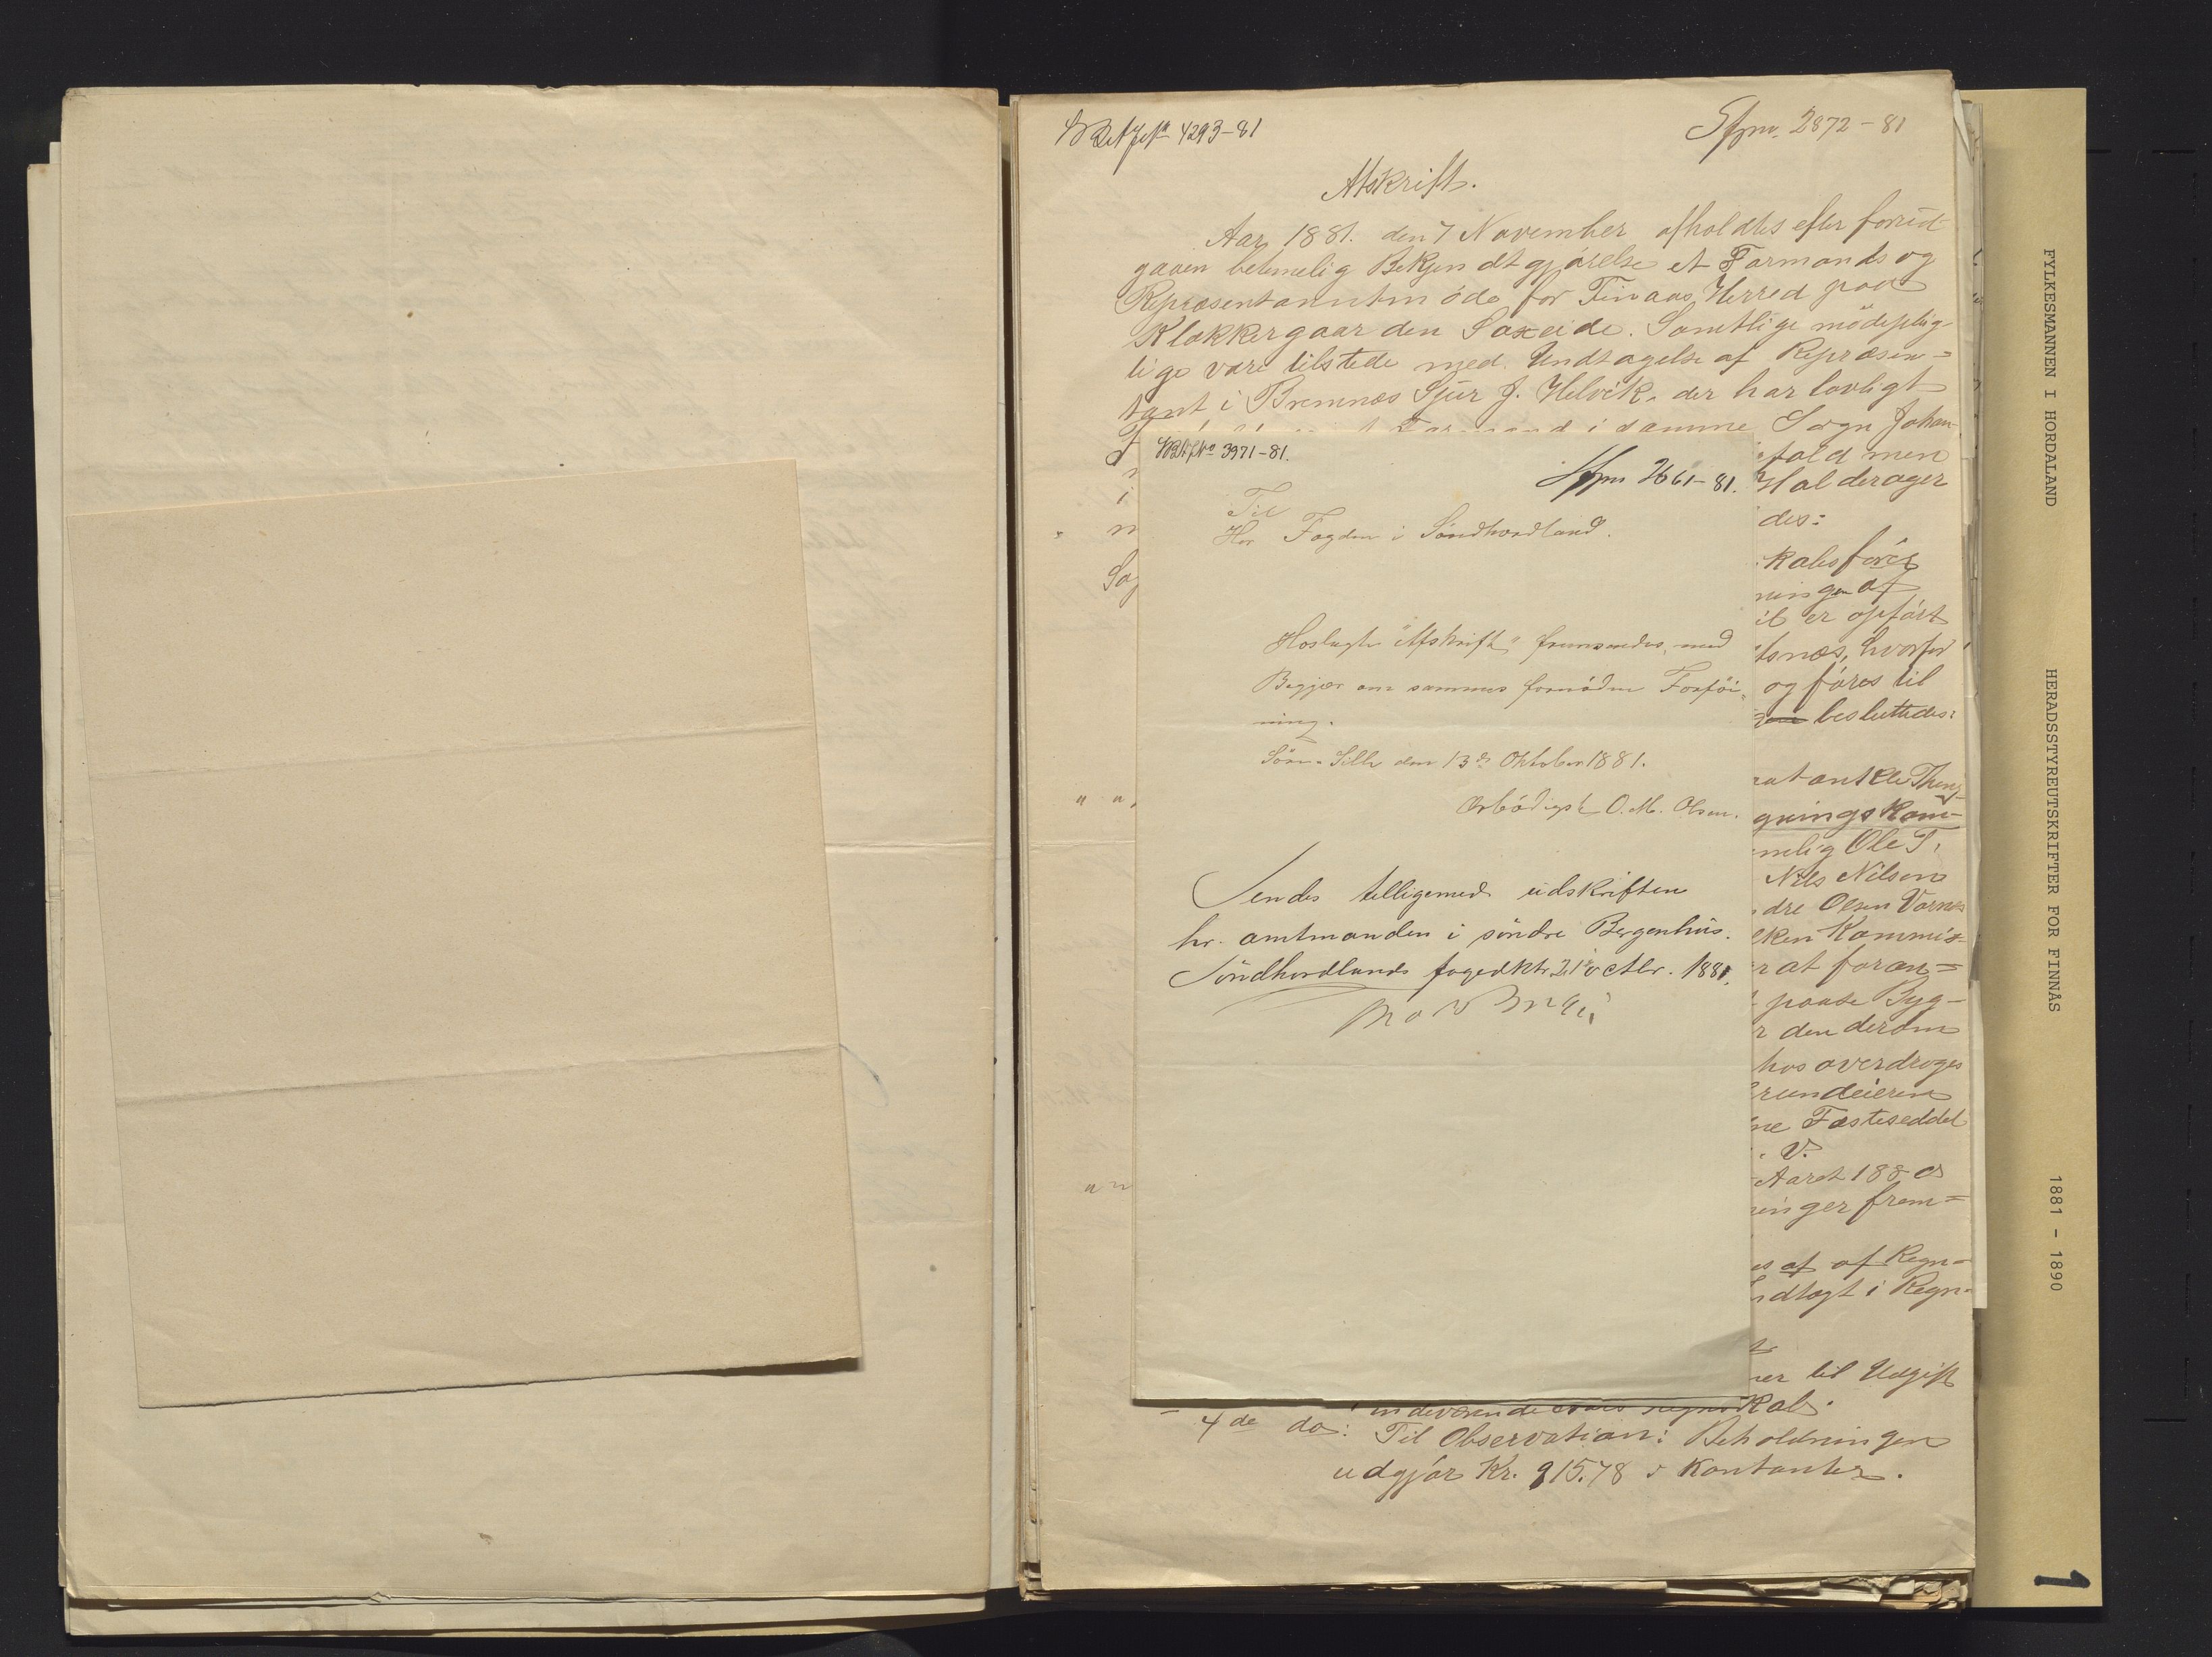 4293-81
Sfjnr. 2872-81
Afskrift.
Aar 1881. den 7 November afholdtes efter forud-
gaaen betimelig Bekjendtgjørelse et Formands og
Repræsentanntmöde for Finaas Herred paa
Klokkergaarden Saxeide. Samtlige mödeplig-
lige vare tilstede med Undtagelse af Repræsen=
tant i Bremnæs Sjur J. Helvik, der har lovligt
i samme Sogn Johan-
fald men
Halderager
des:
kabsfører
ningen af
il er opført
tsnæs, hvorfor
og føres til
besluttedes:
rat antkle Thin-
gnings Kom-
melig Ole T.
Nils Nilsen
dre Olsen Vornes
lken Kommis-
r at foran=
paate Byg-
r den derom
hos overdroges
rundeieren
ne Fæsteseddel
. V.
Aaret 1880
ninger frem=
es af af Regn-
ndtagt i Regn-
ner til Udgift
indeværende Aars regnskab.
- 4de do: Til Observation: Beholdningen
udgjør Kr. 915.78 i Kontanter.
3971-81.
Sfjnr 2661-81.
Til
Her Fogden i Søndhordland.
Hoslagte "Afskrift" fremsendes, med
Begjær om sammes fornødne Forføi=
ning.
Søre-Sille den 13de Oktober 1881.
Ærbødigst O. M. Olsen.
Sendes tilligemed udskriften
hr. amtmanden i söndre Bergenhus.
Söndhordlands fogedktr 21 octbr. 1881.
FYLKESMANNEN I HORDALAND
HERADSSTYREUTSKRIFTER FOR FINNÅS
1881 - 1890
1